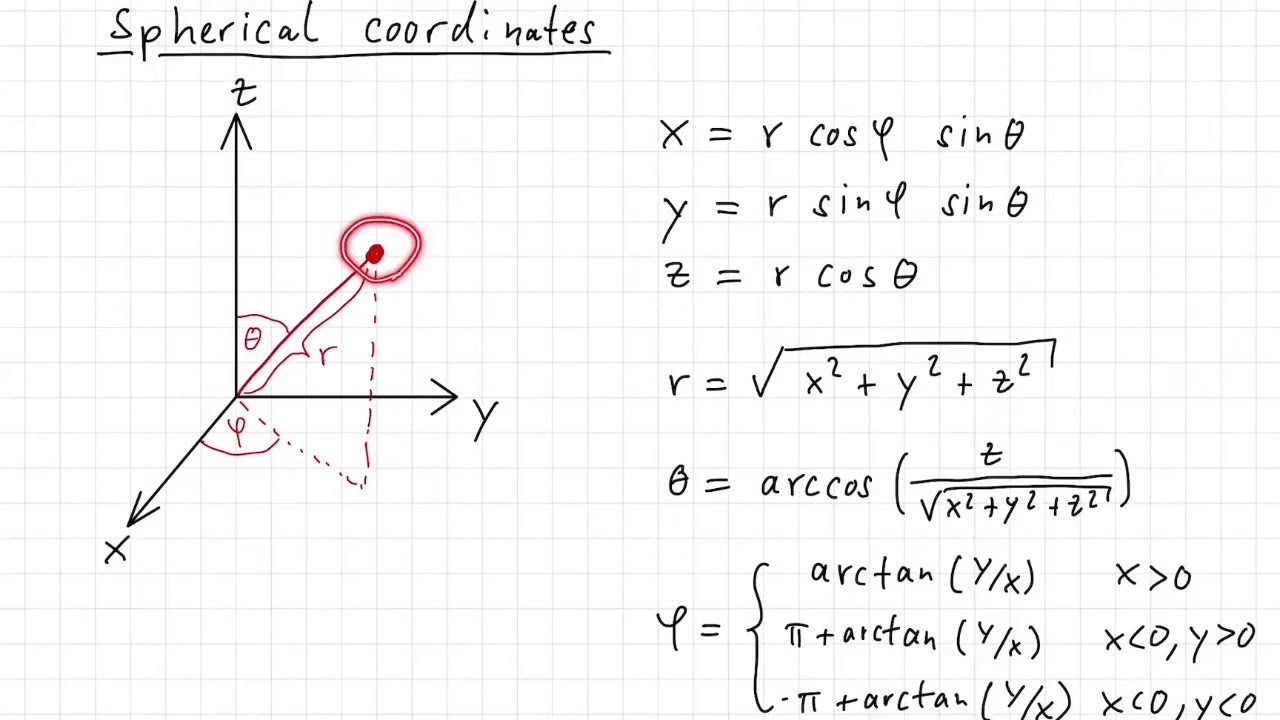 Spherical coordinates
z
θ
r
φ
y
x
x = r cosφ sinθ
y = r sinφ sinθ
z = r cosθ
r = √(x² + y² + z²)
θ = arccos (z/√(x²+y²+z²))
φ = { arctan (y/x) x>0
π + arctan (y/x) x<0, y>0
-π + arctan (y/x) x<0, y<0